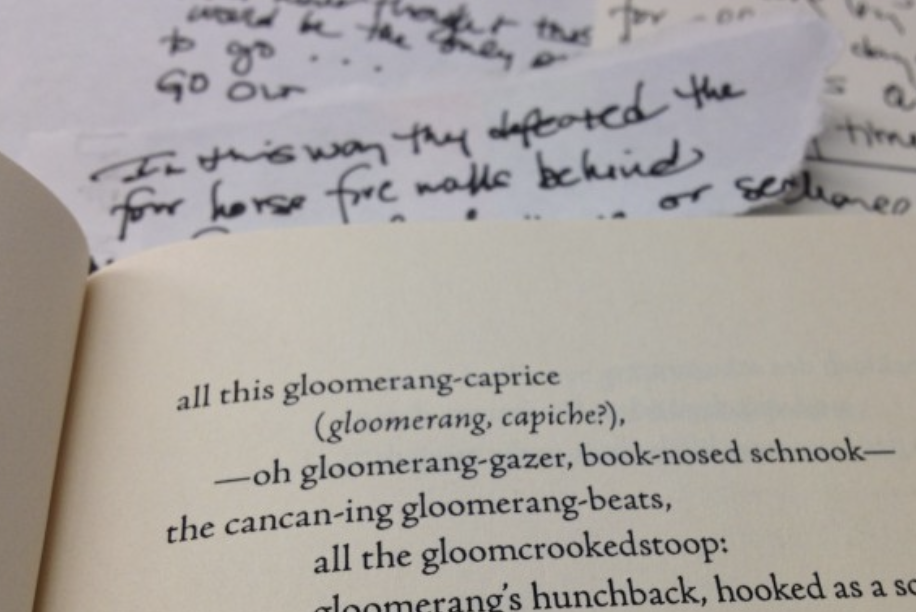 would be the
to go ....
GO Our
In this way they defeated the
four horse fire walls behind
or
time
all this gloomerang-caprice
(gloomerang, capiche?),
—oh gloomerang-gazer, book-nosed schnook—
the cancan-ing gloomerang-beats,
all the gloomcrookedstoop:
gloomerang's hunchback, hooked as a